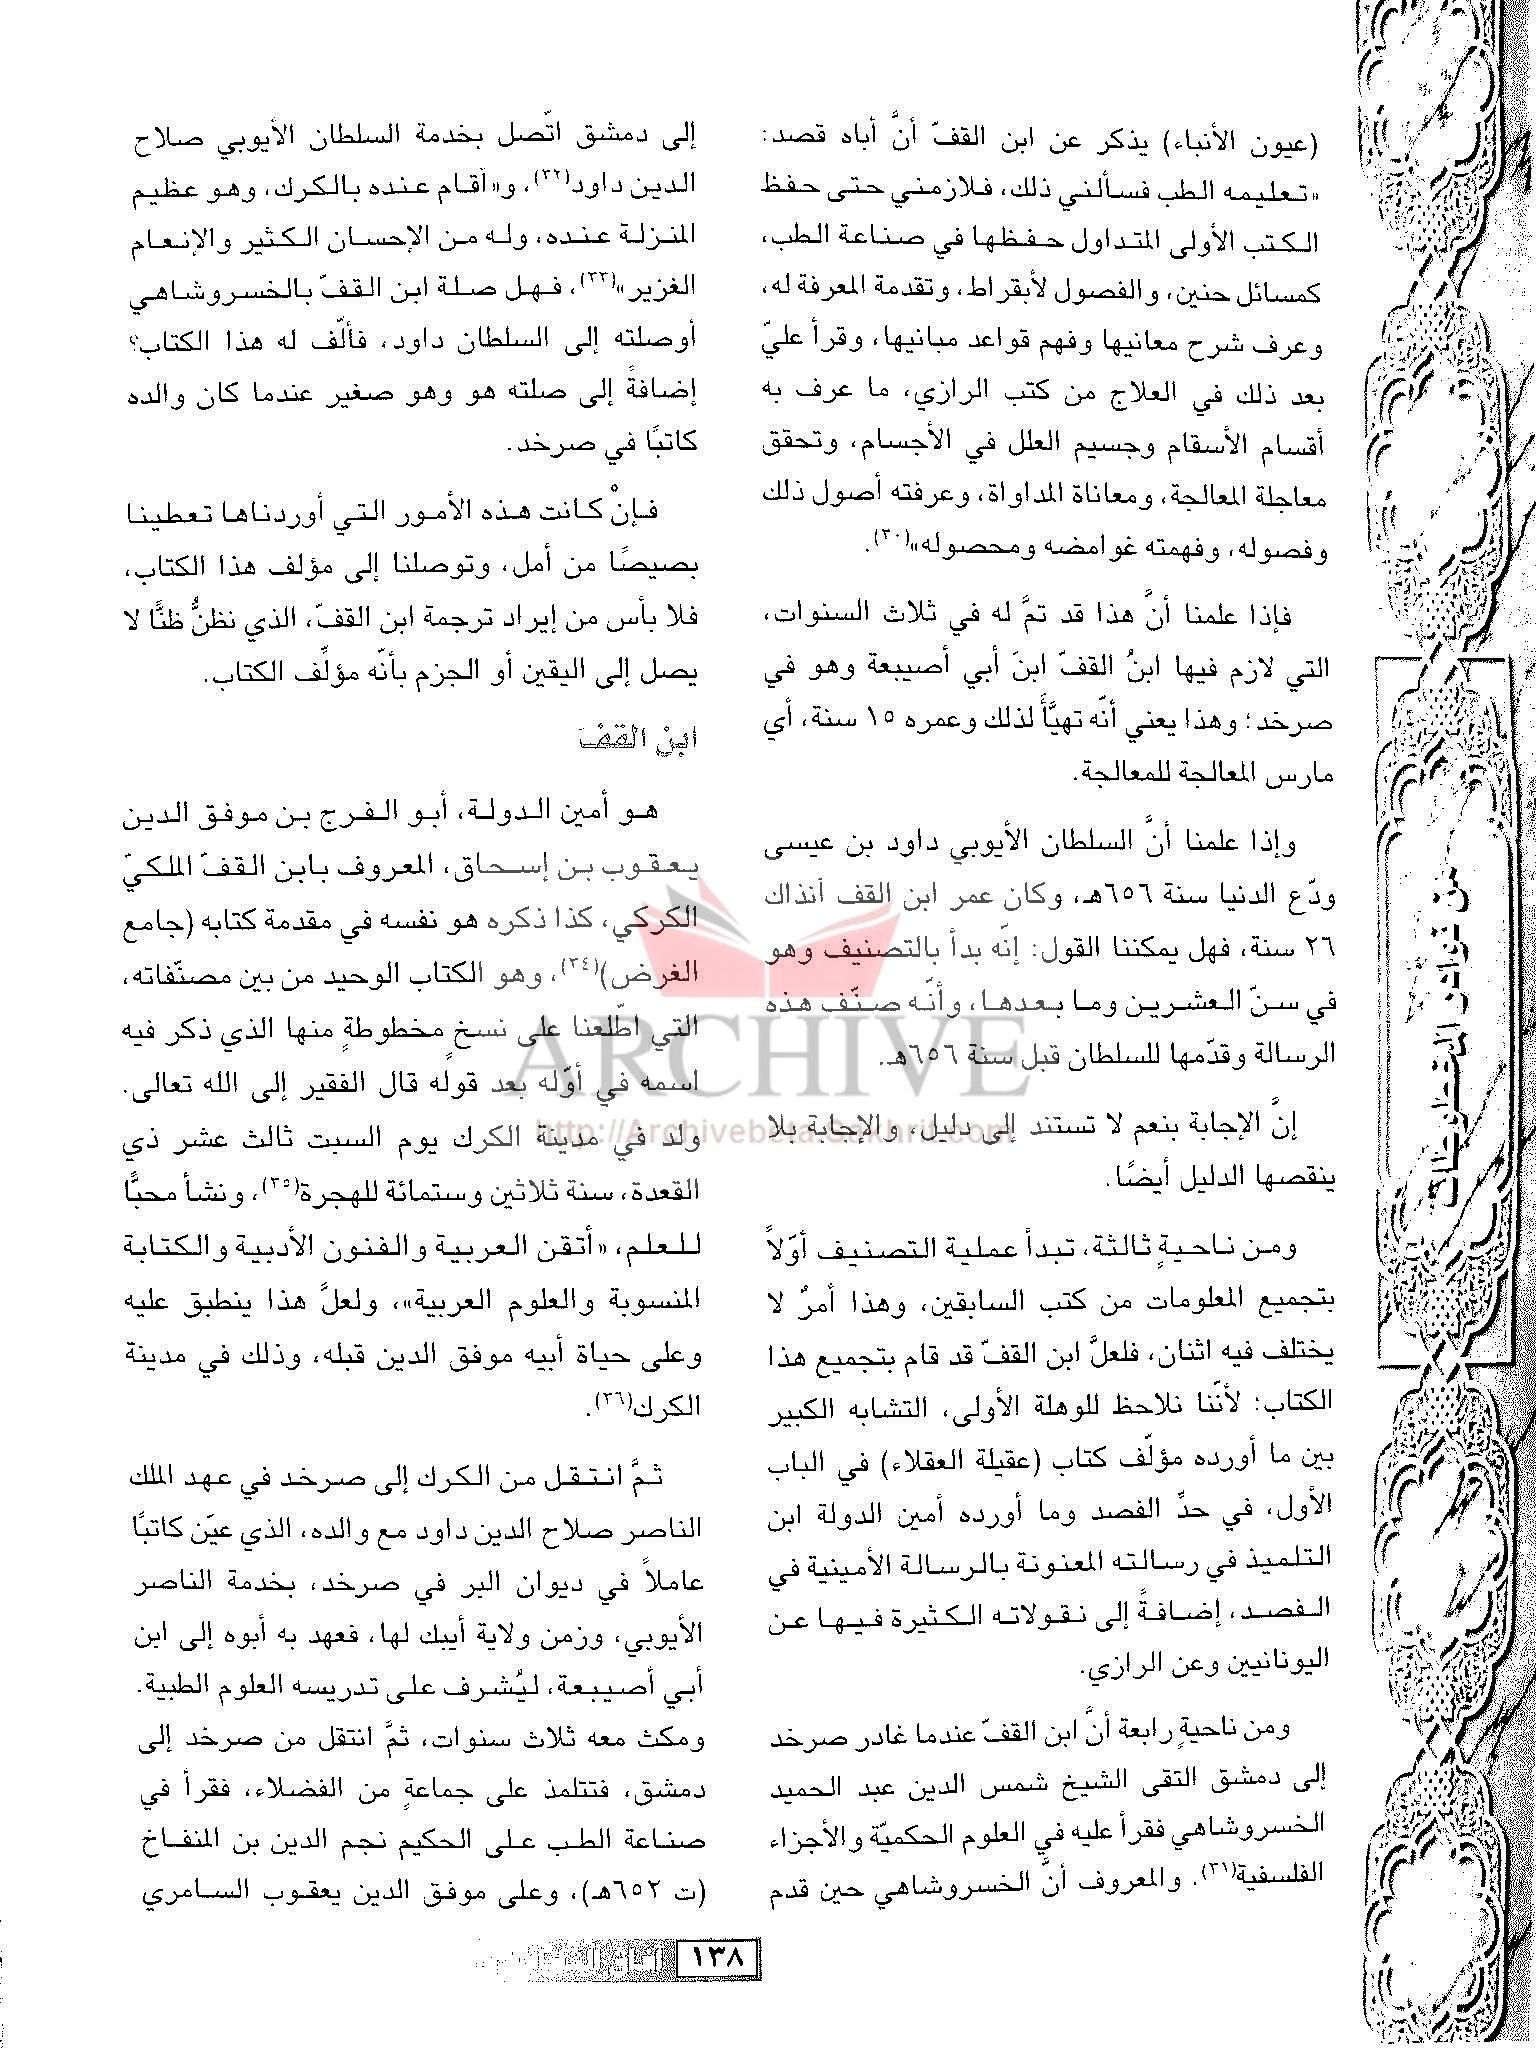 (عيون الأنباء) يذكر عن ابن القفّ أنَّ أباه قصد:
«تعليمه الطب فسألني ذلك، فلازمني حتى حفظ
الكتب الأولى المتداول حفظها في صناعة الطب،
كمسائل حنين، والفصول لأبقراط، وتقدمة المعرفة له،
وعرف شرح معانيها وفهم قواعد مبانيها، وقرأ عليّ
بعد ذلك في العلاج من كتب الرازي، ما عرف به
أقسام الأسقام وجسيم العلل في الأجسام، وتحقق
معاجلة المعالجة، ومعاناة المداواة، وعرفته أصول ذلك
وفصوله، وفهمته غوامضه ومحصوله»(٣٠).
فإذا علمنا أنَّ هذا قد تمَّ له في ثلاث السنوات،
التي لازم فيها ابنُ القفّ ابنَ أبي أصيبعة وهو في
صرخد؛ وهذا يعني أنّه تهيَّأ لذلك وعمره ١٥ سنة، أي
مارس المعالجة للمعالجة.
وإذا علمنا أنَّ السلطان الأيوبي داود بن عيسى
ودّع الدنيا سنة ٦٥٦هـ، وكان عمر ابن القف أنذاك
٢٦ سنة، فهل يمكننا القول: إنّه بدأ بالتصنيف وهو
في سنّ العشرين وما بعدها، وأنّه صنّف هذه
الرسالة وقدّمها للسلطان قبل سنة ٦٥٦هـ.
إنَّ الإجابة بنعم لا تستند إلى دليل، والإجابة بلا
ينقصها الدليل أيضًا.
ومن ناحيةٍ ثالثة، تبدأ عملية التصنيف أوّلاً
بتجميع المعلومات من كتب السابقين، وهذا أمرٌ لا
يختلف فيه اثنان، فلعلَّ ابن القفّ قد قام بتجميع هذا
الكتاب: لأنّنا نلاحظ للوهلة الأولى، التشابه الكبير
بين ما أورده مؤلّف كتاب (عقيلة العقلاء) في الباب
الأول، في حدِّ الفصد وما أورده أمين الدولة ابن
التلميذ في رسالته المعنونة بالرسالة الأمينية في
الفصد، إضافةً إلى نقولاته الكثيرة فيها عن
اليونانيين وعن الرازي.
ومن ناحيةٍ رابعة أنَّ ابن القفّ عندما غادر صرخد
إلى دمشق التقى الشيخ شمس الدين عبد الحميد
الخسروشاهي فقرأ عليه في العلوم الحكميّة والأجزاء
الفلسفية(٣١). والمعروف أنَّ الخسروشاهي حين قدم
إلى دمشق اتّصل بخدمة السلطان الأيوبي صلاح
الدين داود(٣٢)، و«أقام عنده بالكرك، وهو عظيم
المنزلة عنده، وله من الإحسان الكثير والإنعام
الغزير»(٣٣)، فهل صلة ابن القفّ بالخسروشاهي
أوصلته إلى السلطان داود، فألّف له هذا الكتاب؟
إضافةً إلى صلته هو وهو صغير عندما كان والده
كاتبًا في صرخد.
فإنْ كانت هذه الأمور التي أوردناها تعطينا
بصيصًا من أمل، وتوصلنا إلى مؤلف هذا الكتاب،
فلا بأس من إيراد ترجمة ابن القفّ، الذي نظنُّ ظنًّا لا
يصل إلى اليقين أو الجزم بأنّه مؤلِّف الكتاب.
ابنْ القفْ
هو أمين الدولة، أبو الفرج بن موفق الدين
يعقوب بن إسحاق، المعروف بابن القفّ الملكيّ
الكركي، كذا ذكره هو نفسه في مقدمة كتابه (جامع
الغرض)(٣٤)، وهو الكتاب الوحيد من بين مصنّفاته،
التي اطّلعنا على نسخٍ مخطوطةٍ منها الذي ذكر فيه
اسمه في أوّله بعد قوله قال الفقير إلى الله تعالى.
ولد في مدينة الكرك يوم السبت ثالث عشر ذي
القعدة، سنة ثلاثين وستمائة للهجرة(٣٥)، ونشأ محبًّا
للعلم، «أتقن العربية والفنون الأدبية والكتابة
المنسوبة والعلوم العربية»، ولعلَّ هذا ينطبق عليه
وعلى حياة أبيه موفق الدين قبله، وذلك في مدينة
الكرك(٣٦).
ثمَّ انتقل من الكرك إلى صرخد في عهد الملك
الناصر صلاح الدين داود مع والده، الذي عيّن كاتبًا
عاملاً في ديوان البر في صرخد، بخدمة الناصر
الأيوبي، وزمن ولاية أيبك لها، فعهد به أبوه إلى ابن
أبي أصيبعة، ليُشرف على تدريسه العلوم الطبية.
ومكث معه ثلاث سنوات، ثمَّ انتقل من صرخد إلى
دمشق، فتتلمذ على جماعةٍ من الفضلاء، فقرأ في
صناعة الطب على الحكيم نجم الدين بن المنفاخ
(ت ٦٥٢هـ)، وعلى موفق الدين يعقوب السامري
من نوادر المخطوطات
ARCHIVE
http://Archivebeta.Sakhrit.com
١٣٨